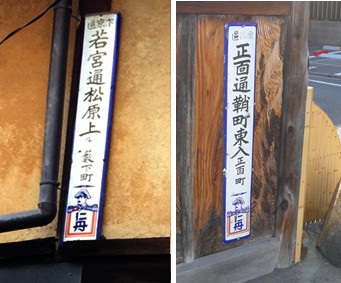 下京區
若宮通松原上ル
藪下町
仁丹
正面通鞘町東入
正面町
仁丹